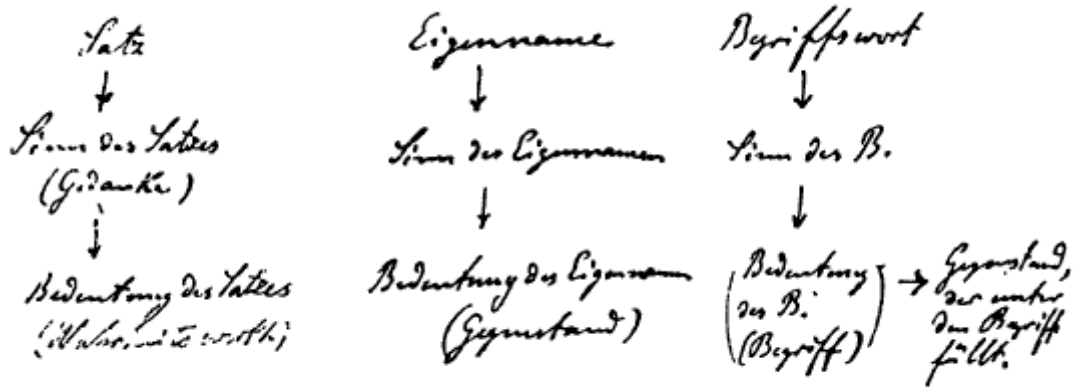 Satz
↓
Sinn des Satzes
(Gedanke)
↓
Bedeutung des Satzes
(Wahrheitswerth)
Eigenname
↓
Sinn des Eigennamens
↓
Bedeutung des Eigennamens
(Gegenstand)
Begriffswort
↓
Sinn des B.
↓
(Bedeutung
des B.
(Begriff)) →
Gegenstand,
der unter
den Begriff
fällt.